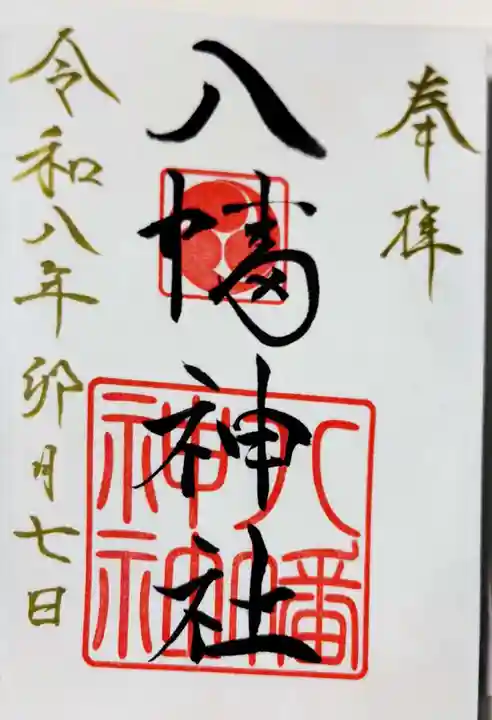 奉拝
八幡神社
八幡
神社
令和八年卯月七日